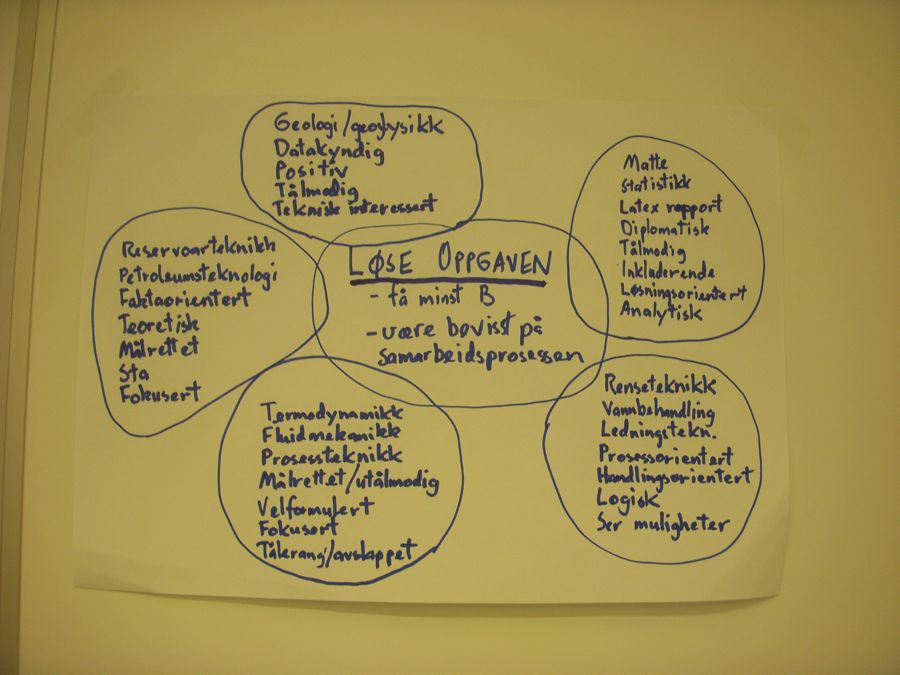 Geologi/geofysikk
Datakyndig
Positiv
Tålmodig
Teknisk interessert
Matte
Statistikk
Latex rapport
Diplomatisk
Tålmodig
Inkluderende
Løsningsorientert
Analytisk
Reservoarteknikk
Petroleumsteknologi
Faktaorientert
Teoretisk
Målrettet
Sta
Fokusert
LØSE OPPGAVEN
- få minst B
- være bevisst på
samarbeidsprosessen
Termodynamikk
Fluidmekanikk
Prosessteknikk
Målrettet/utålmodig
Velformulert
Fokusert
/avslappet
Renseteknikk
Vannbehandling
Ledningstekn.
Prosessorientert
Handlingsorientert
Logisk
Ser muligheter